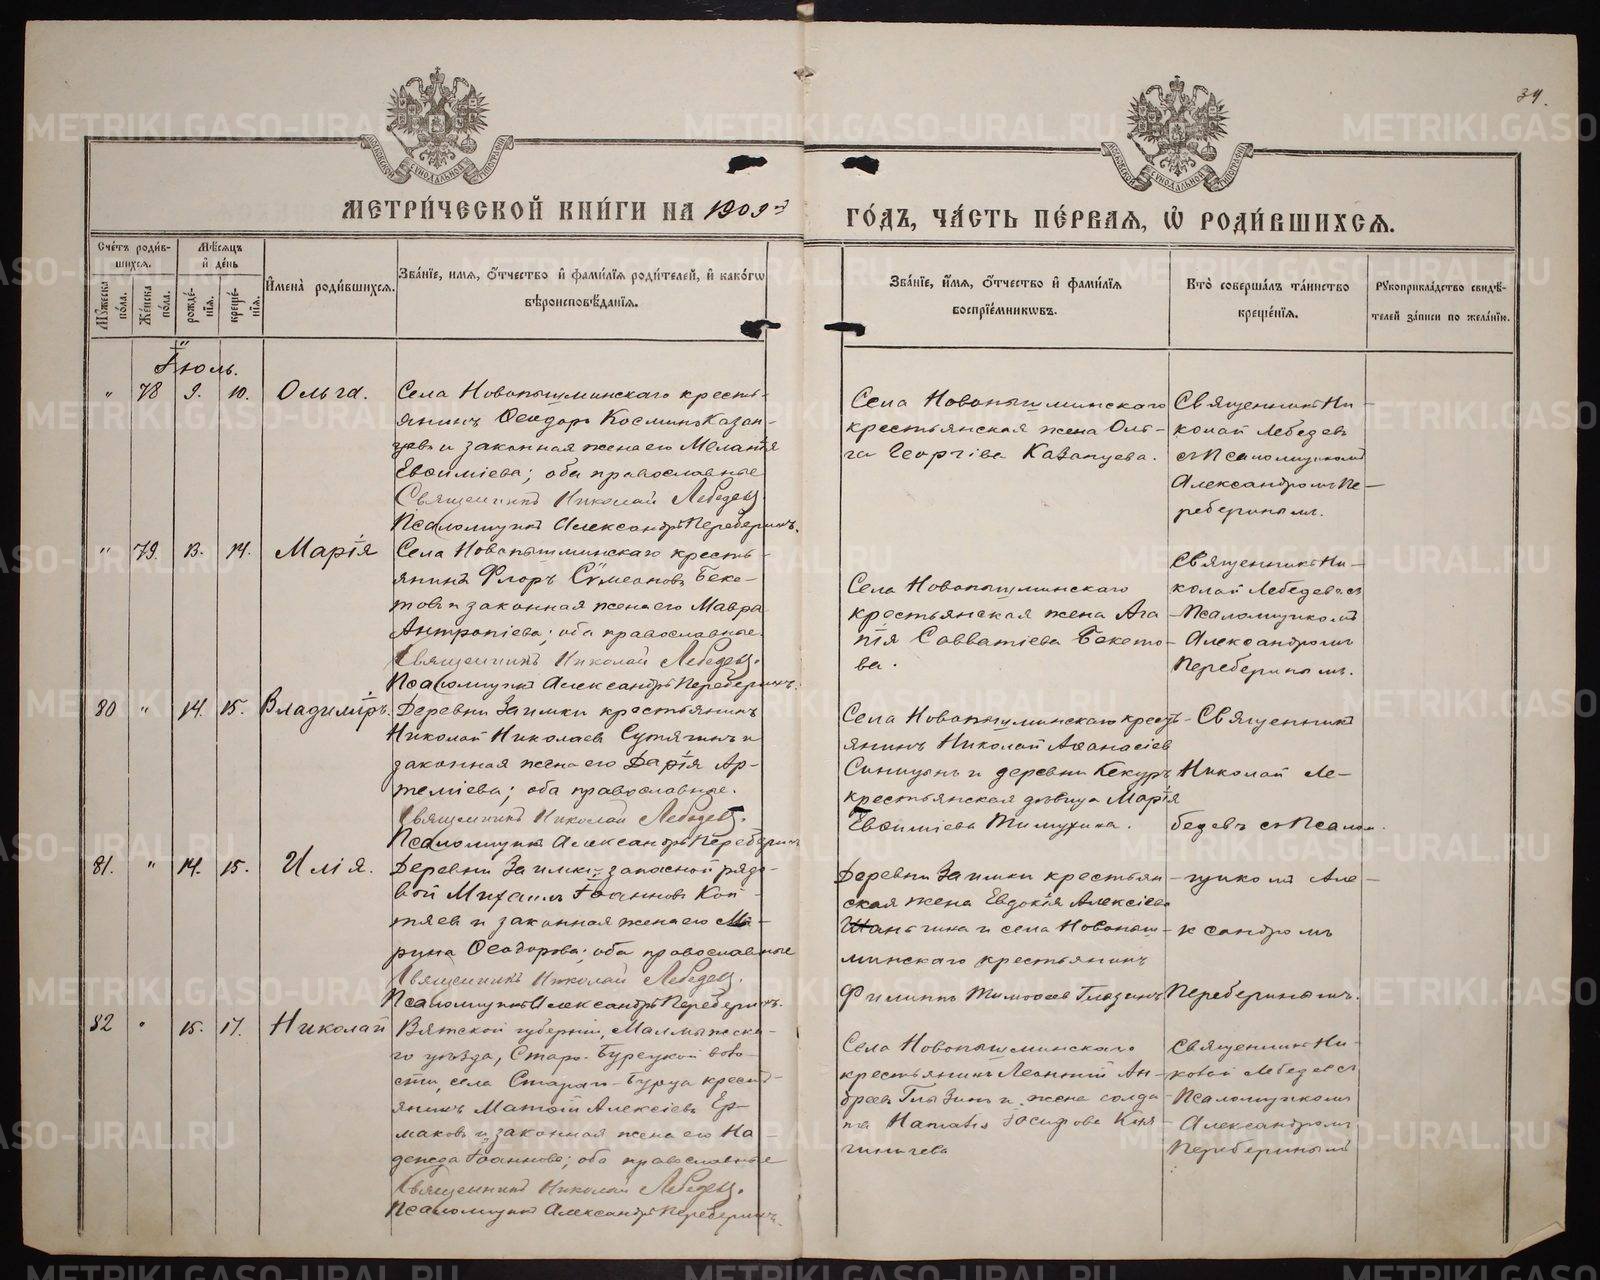 34.
МОСКОВСКОЙ СѴНОДАЛЬНОЙ ТИПОГРАФІИ
МОСКОВСКОЙ СѴНОДАЛЬНОЙ ТИПОГРАФІИ
МЕТРИ́ЧЕСКОЙ КНИ́ГИ НА 1909й
ГО́ДЪ, ЧА́СТЬ ПЕ́РВАЯ, Ѽ РОДИ́ВШИХСЯ.
Сче́тъ роди́в-
шихся.
Му́жеска по́ла.
Же́нска по́ла.
Мѣ́сяцъ
и҆ де́нь
рожде́-
нїя.
креще́-
нїя.
И҆мена̀ роди́вшихся.
Зва́нїе, и҆мя, ѻ҆́тчество и҆ фами́лїя роди́телей, и҆ како́гѡ
вѣроисповѣ́данїя.
Зва́нїе, и҆́мя, ѻ҆́тчество и҆ фами́лїя
воспрїе́мникѡвъ.
Кто̀ соверша́лъ та́инство
креще́нїя.
Рꙋкоприкла́дство свидѣ́-
телей за́писи по жела́нїю.
Іюль.
" 78 9. 10. Ольга.
Села Новопышминскаго кресть-
янинъ Ѳеодоръ Косминъ Казан-
цевъ и законная жена его Меланія
Евѳиміева; оба православные
Священникъ Николай Лебедевъ.
Псаломщикъ Александръ Переберинъ.
Села Новопышминскаго
крестьянская жена Оль-
га Георгіева Казанцева.
Священникъ Ни-
колай Лебедевъ
съ Псаломщикомъ
Александромъ Пе-
реберинымъ.
" 79. 13. 14. Марія
Села Новопышминскаго кресть-
янинъ Флоръ Сѵмеоновъ Беке-
товъ и законная жена его Мавра
Антропіева; оба православные.
Священникъ Николай Лебедевъ.
Псаломщикъ Александръ Переберинъ.
Села Новопышминскаго
крестьянская жена Ага
пія Савватіева Бекето-
ва.
Священникъ Ни-
колай Лебедевъ съ
Псаломщикомъ
Александромъ
Переберинымъ.
80 " 14. 15. Владиміръ.
Деревни Заимки крестьянинъ
Николай Николаевъ Сутягинъ и
законная жена его Дарія Ар-
теміева; оба православные.
Священникъ Николай Лебедевъ.
Псаломщикъ Александръ Переберинъ
Села Новопышминскаго кресть-
янинъ Николай Аѳанасіев
Синицынъ и деревни Кекуръ
крестьянская дѣвица Марія
Евѳиміева Тимухина.
Священникъ
Николай Ле-
бедевъ съ Псалом-
81. " 14. 15. Илія.
Деревни Заимки запасной рядо-
вой Михаилъ Іоанновъ Коп-
тяев и законная жена его Ма-
рина Ѳеодорова; оба православные
Священникъ Николай Лебедевъ.
Псаломщикъ Александръ Переберинъ.
Деревни Заимки крестьян-
ская жена Евдокія Алексіева
Шаньгина и села Новопыш-
минскаго крестьянинъ
Филиппъ Тимоѳеев Глазинъ
щикомъ Але-
ксандромъ
Переберинымъ.
82 " 15. 17. Николай
Вятской губерніи, Малмыжска-
го уѣзда, Старо-Бурецкой воло-
сти, села Стараго-Бурца кресть-
янинъ Матѳій Алексіевъ Ер-
маковъ и законная жена его На-
дежда Іоаннова; оба православные
Священникъ Николай Лебедевъ.
Псаломщикъ Александръ Переберинъ.
Села Новопышминскаго
крестьянинъ Леонтій Ан-
дреевъ Глызинъ и жена солда
та Наталія Іосифова
Священникъ Ни-
колай Лебедевъ съ
Псаломщикомъ
Александромъ
Переберинымъ
METRIKI.GASO-URAL.RU